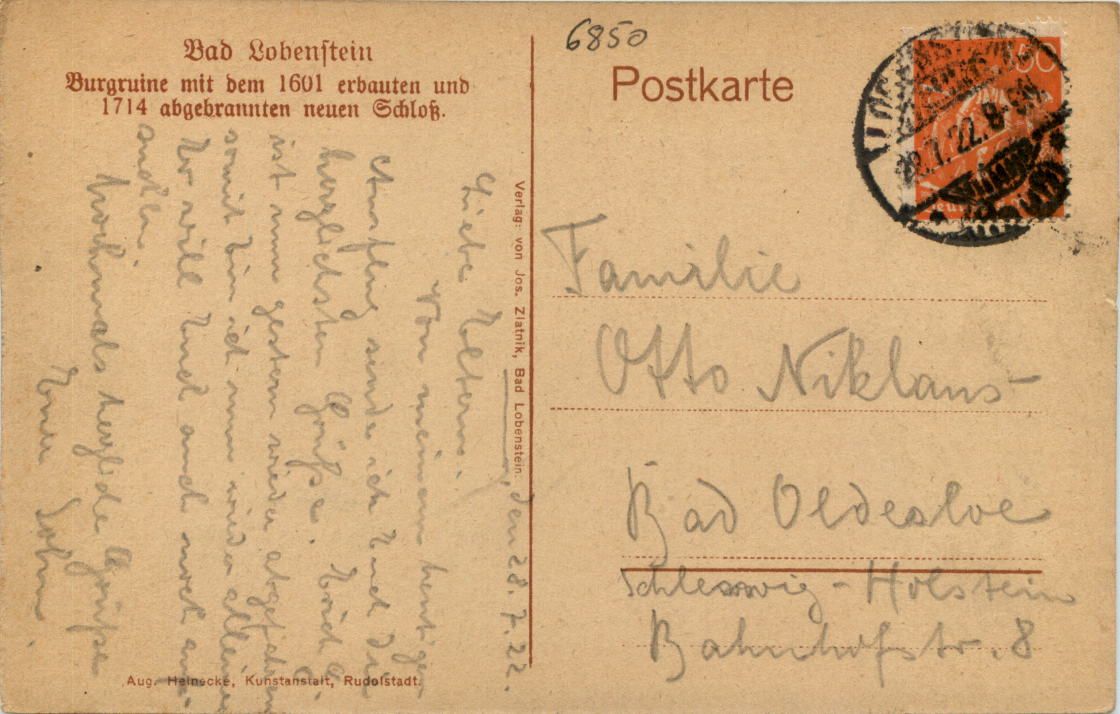 Bad Lobenstein
Burgruine mit dem 1601 erbauten und
1714 abgebrannten neuen Schloß.
6850
Postkarte
50
LOBENSTEIN
28.7.22.8-9V.
Verlag: von Jos. Zlatnik, Bad Lobenstein.
, den 28. 7. 22.
Liebe Eltern.
Von meinem heutigen
Ausflug sende ich Euch die
herzlichsten Grüße. Erich G.
ist nun gestern wieder abgefahren
somit bin ich nun wieder alleine
Er will Euch auch noch auf-
suchen.
Nochmals herzliche Grüße
Euer Sohn.
Familie
Otto Niklaus
Bad Oldesloe
Schleswig-Holstein
Bahnhofstr. 8
Aug. Heinecke, Kunstanstalt, Rudolstadt.